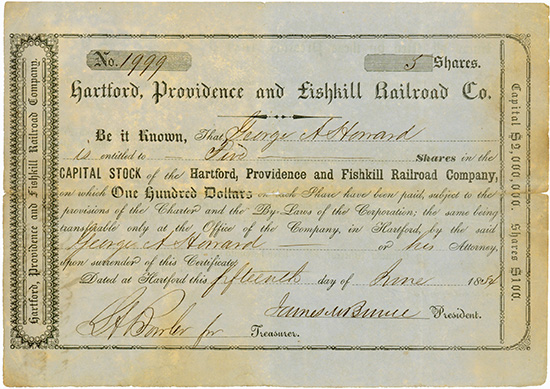 No. 1999 5 Shares.
Hartford, Providence and Fishkill Railroad Co.
Be it Known, That George A Howard
is entitled to Five Shares in the
CAPITAL STOCK of the Hartford, Providence and Fishkill Railroad Company,
on which One Hundred Dollars on each Share have been paid, subject to the
provisions of the Charter and the By-Laws of the Corporation; the same being
transferable only at the Office of the Company, in Hartford, by the said
George A Howard or his Attorney,
upon surrender of this Certificate.
Dated at Hartford this fifteenth day of June 185
President.
for Treasurer.
Hartford, Providence and Fishkill Railroad Company.
Capital $2,000,000. Shares $100.